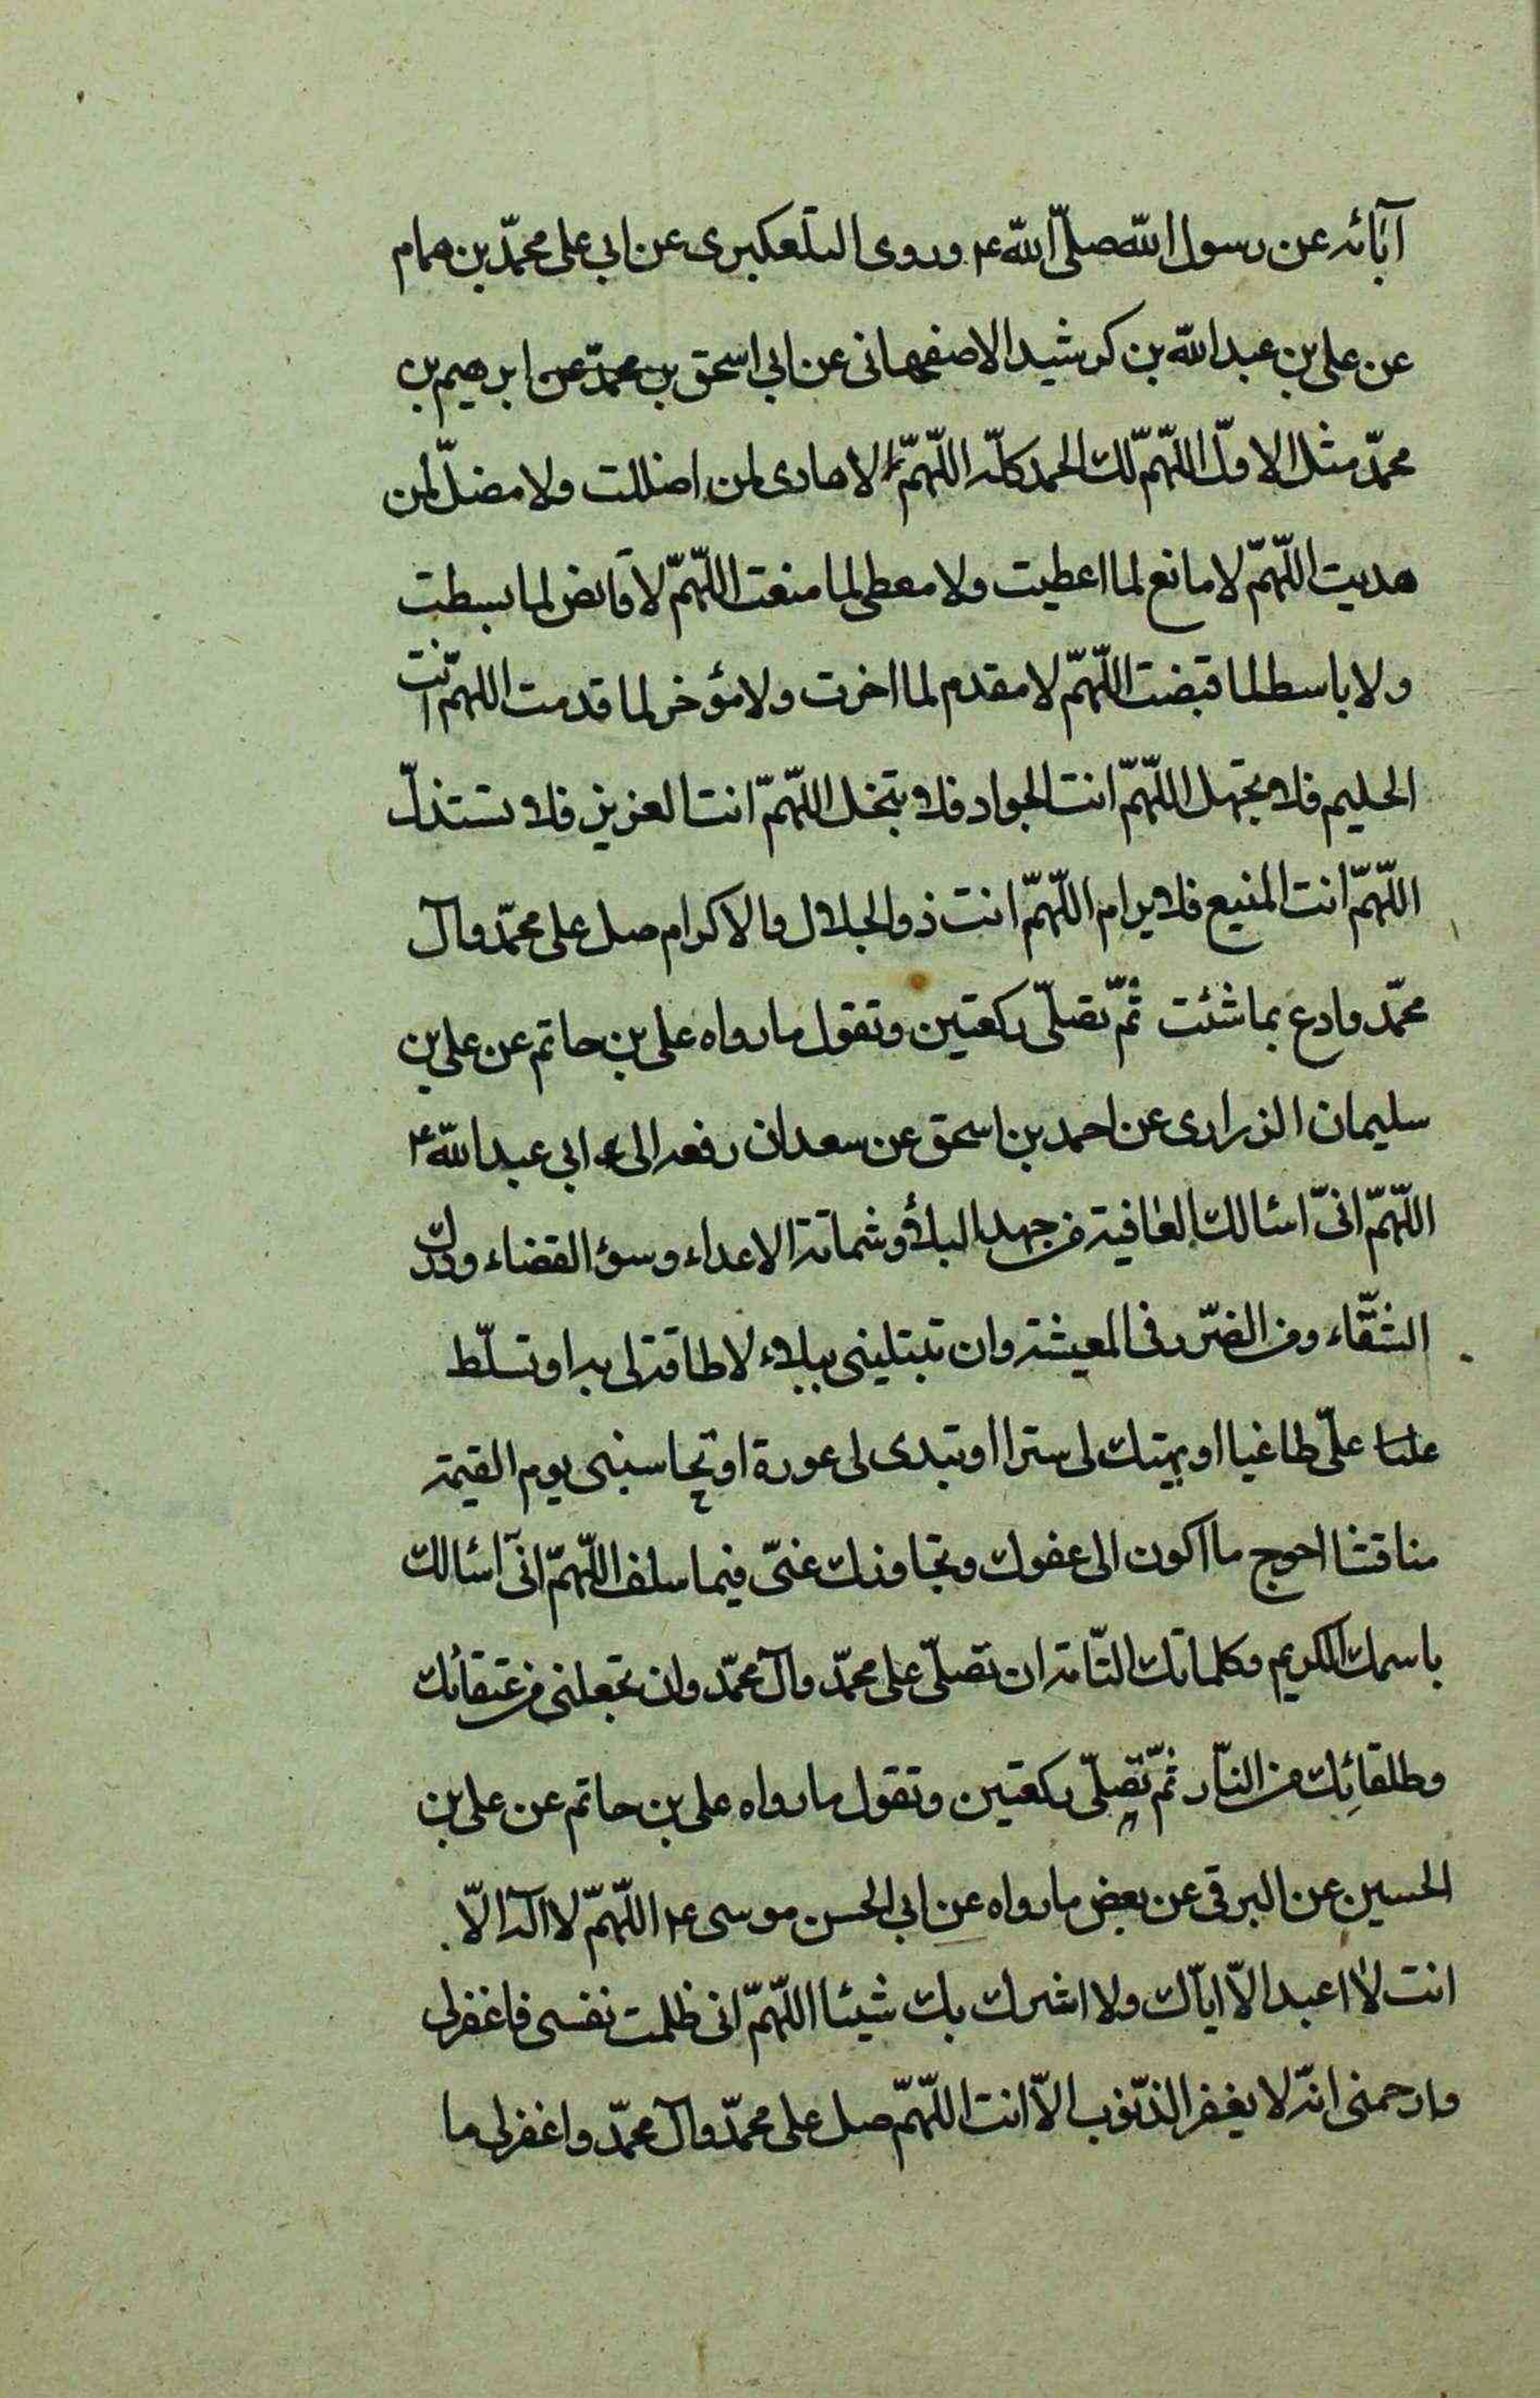 آبائه عن رسول الله صلّى الله ع وروى التلعكبرى عن ابي على محمّد بن همام
عن على بن عبد الله بن كوشيد الاصفهانى عن ابي اسحق بن محمّد عن ابرهيم بن
محمّد مثل الاوّل اللّهمّ لك الحمد كلّه اللّهمّ لا هادى لمن اضللت ولا مضلّ لمن
هديت اللّهمّ لا مانع لما اعطيت ولا معطى لما منعت اللّهمّ لا قابض لما بسطت
ولا باسط لما قبضت اللّهمّ لا مقدم لما اخرت ولا مؤخر لما قدمت اللهمّ انت
الحليم فلا تجهل اللّهمّ انت الجواد فلا تبخل اللّهمّ انت العزيز فلا تستذلّ
اللّهمّ انت المنيع فلا يرام اللّهمّ انت ذو الجلال والاكرام صل على محمّد وآل
محمّد وادع بما شئت ثمّ تصلّى ركعتين وتقول ما رواه على بن حاتم عن على بن
سليمان الزرارى عن احمد بن اسحق عن سعدان رفعه الى ابى عبد الله ع
اللّهمّ انّى اسئالك العافية من جهد البلاء وشماتة الاعداء وسؤ القضاء ودرك
الشّقاء ومن الضّرر فى المعيشة وان تبتلينى ببلاء لا طاقة لى به او تسلّط
علىّ طاغيا او يهتك لى سترا او تبدى لى عورة او تحاسبنى يوم القيمة
مناقشا احوج ما اكون الى عفوك وتجاوزك عنّى فيما سلف اللّهمّ انّى اسئالك
باسمك الكريم وكلماتك التّامة ان تصلّى على محمّد وآل محمّد وان تجعلنى من عتقائك
وطلقائك من النّار ثمّ تصلّى ركعتين وتقول ما رواه على بن حاتم عن على بن
الحسين عن البرقى عن بعض ما رواه عن ابى الحسن موسى ع اللّهمّ لا اله الّا
انت لا اعبد الّا ايّاك ولا اشرك بك شيئا اللّهمّ انى ظلمت نفسى فاغفر لى
وارحمنى انّه لا يغفر الذّنوب الّا انت اللّهمّ صل على محمّد وآل محمّد واغفر لى ما